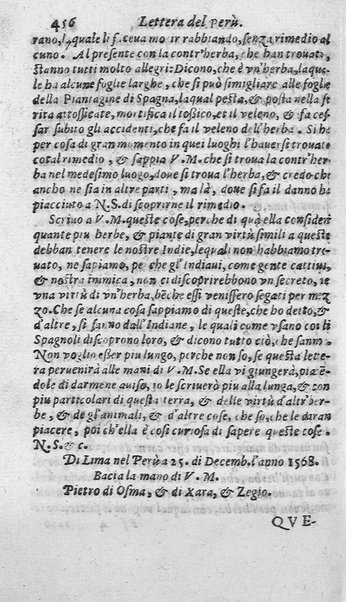 456 Lettera del Perù.
rano, laquale li faceua morir rabbiando, senza rimedio al
cuno. Al presente con la contr'herba, che han trouato,
stanno tutti molto allegri: Dicono, che è vn'herba, laqua-
le ha alcune foglie larghe, che si può simigliare alle foglie
della Piantagine di Spagna, laqual pesta, & posta nella fe
rita attossicate, mortifica il tossico, et il veleno, & fa ces-
sar subito gli accidenti, che fa il veleno dell'herba. Si ha
per cosa di gran momento in quei luoghi l'hauersi trouato
cotal rimedio, & sappia V. M. che si troua la contr'her-
ba nel medesimo luogo, doue si troua l'herba, & credo che
ancho ne sia in altre parti, ma là, doue si fa il danno ha
piacciuto a N. S. di scoprirne il rimedio.
Scriuo a V. M. queste cose, perche di quà ella consideri
quante piu herbe, & piante di gran virtù simili a queste
debban tenere le nostre Indie, lequali non habbiamo tre-
uato, ne sapiamo, perche gl'Indiani, come gente cattiua,
& nostra inimica, non ci discoprirebbono vn secreto, ne
vna virtù di vn'herba, benche essi venissero segati per mez
zo. Che se alcuna cosa sappiamo di queste, che ho detto, &
d'altre, si sanno dall'Indiane, le quali come vsano con li
Spagnoli discoprono loro, & dicono tutto ciò, che sanno.
Non voglio esser piu lungo, perche non so, se questa lette-
ra peruenirà alle mani di V. M. Se ella vi giungerà, pia
dole di darmene auiso, io le scriuerò piu alla lunga, & con
piu particolari di questa terra, & delle virtù d'altr'her-
be, & de gl'animali, & d'altre cose, che so, che le daran
piacere, poi ch'ella è così curiosa di sapere queste cose.
N. S. & c.
Di Lima nel Perù a 25. di Decemb. l'anno 1568.
Bacia la mano di V. M.
Pietro di Osma, & di Xara, & Zegio.
QVE-